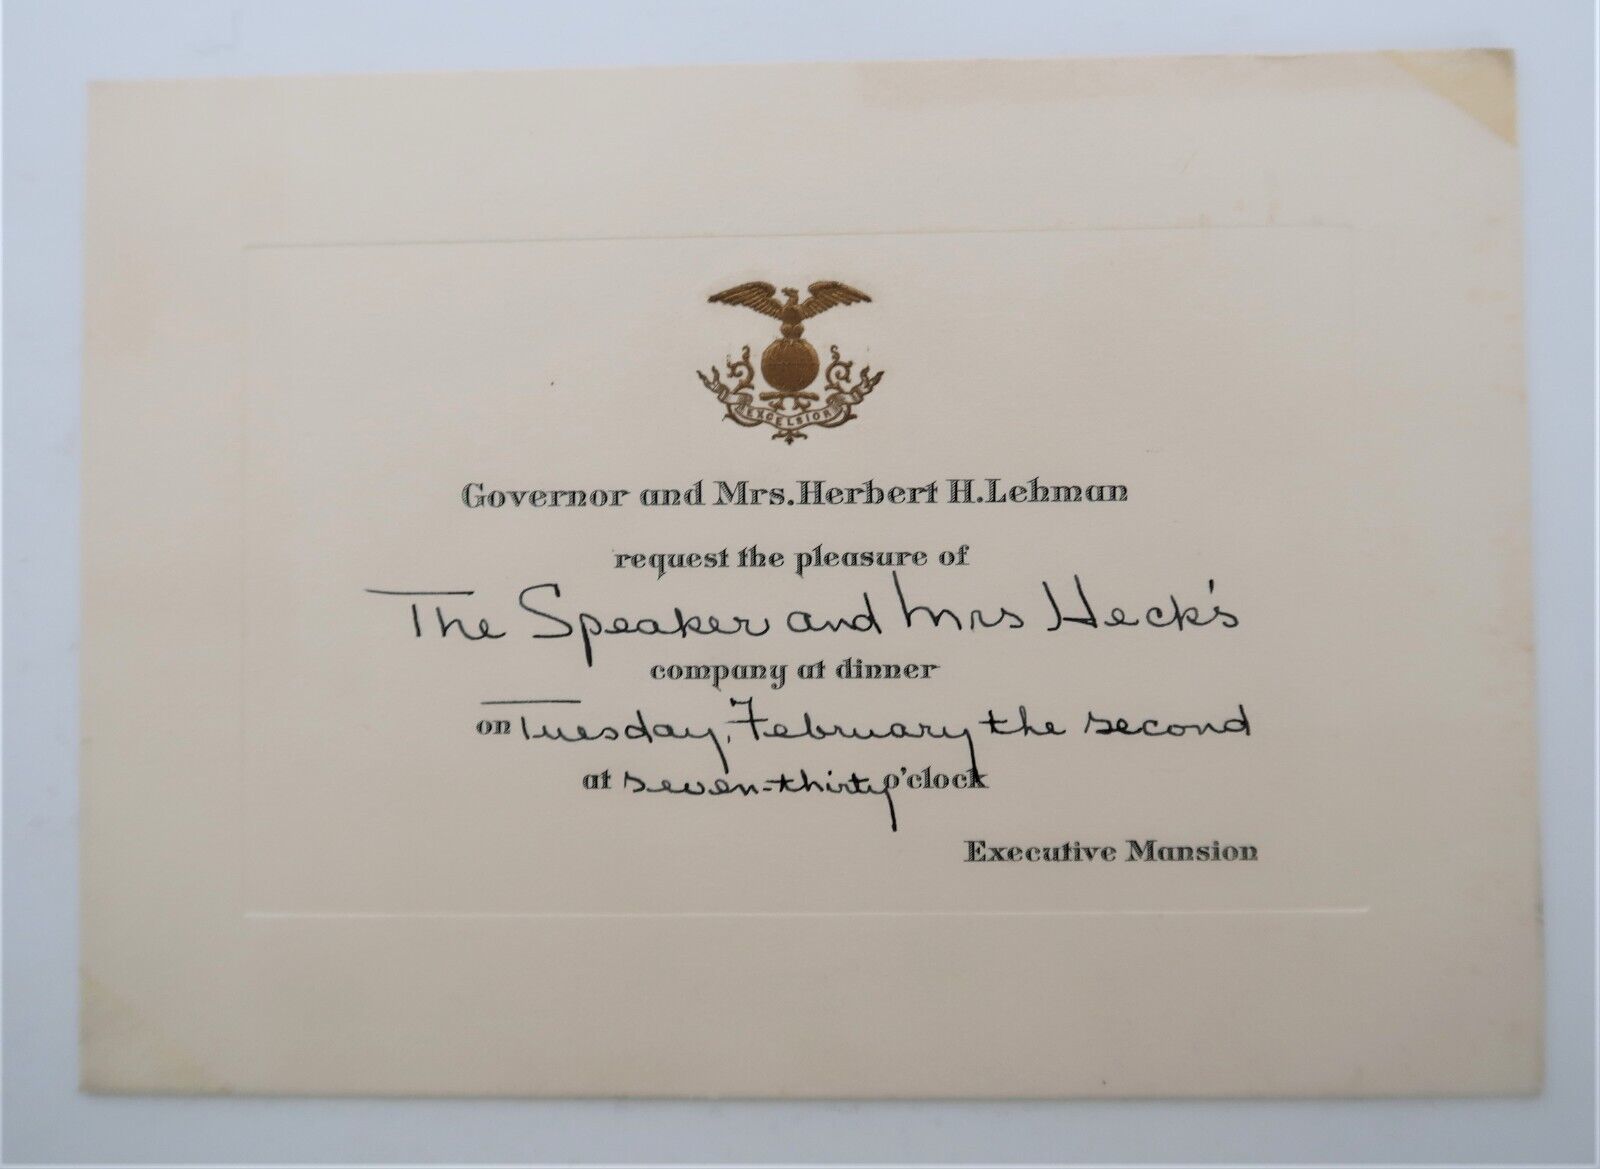 EXCELSIOR
Governor and Mrs. Herbert H. Lehman
request the pleasure of
The Speaker and Mrs Heck's
company at dinner
on Tuesday, February the second
at seven-thirty o'clock
Executive Mansion